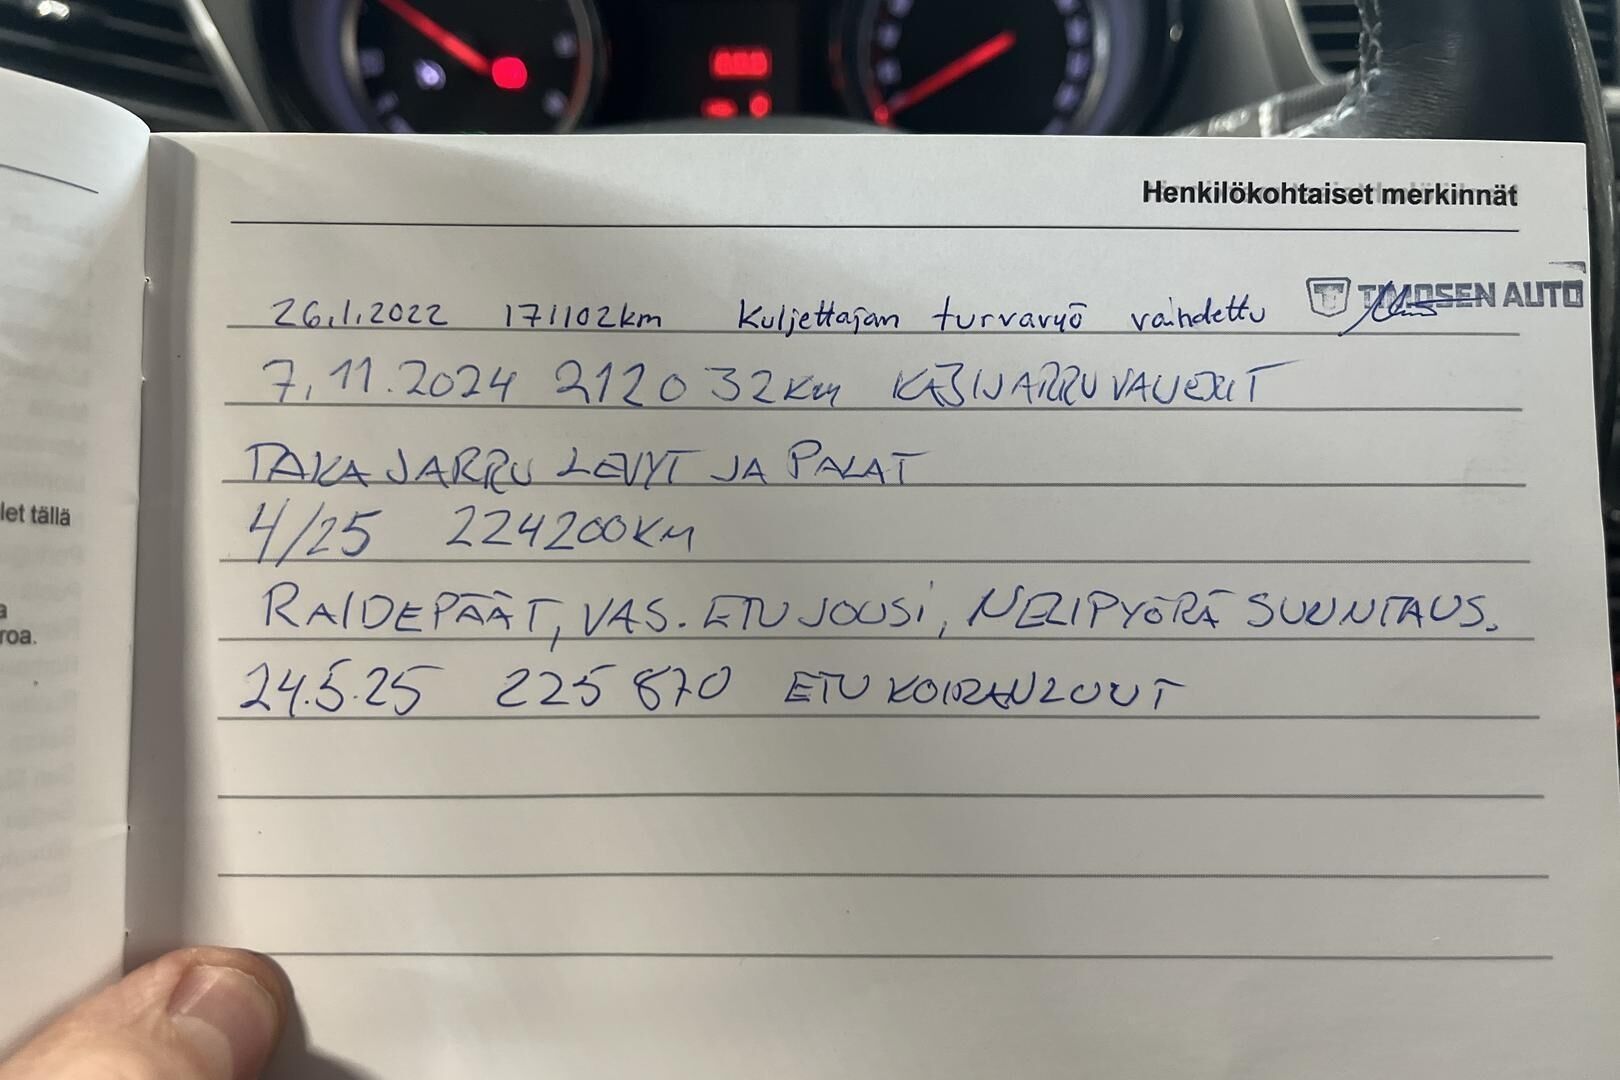 Henkilökohtaiset merkinnät
26.1.2022 171102km Kuljettajan turvavyö vaihdettu TIMOSEN AUTO
7.11.2024 212032km KÄSIJARRUVAIJERIT
TAKA JARRU LEVYT JA PALAT
4/25 224200KM
RAIDEPÄÄT, VAS. ETU JOUSI, NELIPYÖRÄ SUUNTAUS.
24.5.25 225870 ETU KOIRANLUUT
let tällä
roa.